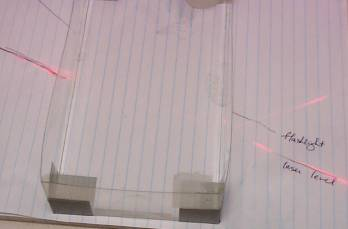 flashlight
laser level